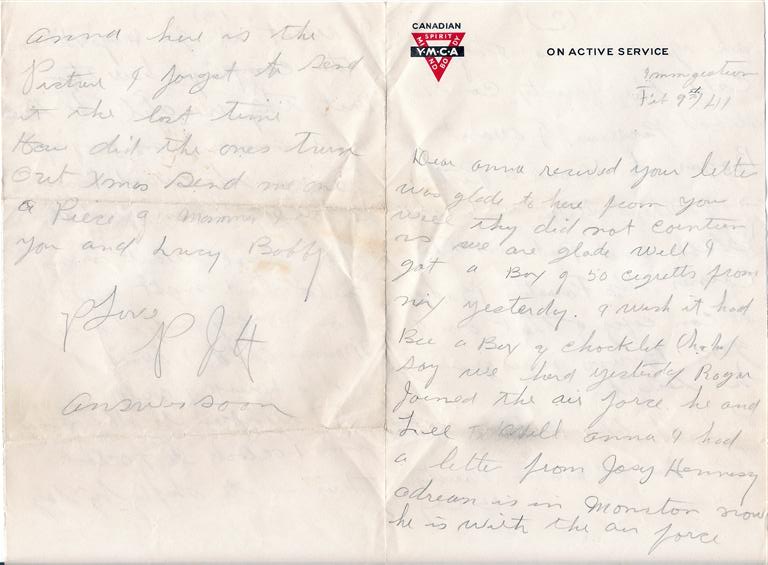 CANADIAN
SPIRIT
MIND
BODY
Y·M·C·A
ON ACTIVE SERVICE
Immgestion
Feb 9th/41
Dear anna recived your letter
was glade to here from you
well they did not
us we are glade well I
got a Box of 50 cigretts from
yesterdy. I wish it had
Bee a Box of chocklet (ha ha)
Say we herd yesterdy Roger
Joined the air force he and
well anna I had
a letter from Josy Hennesy
adrean is in Monston now
he is with the air force
anna here is the
Picture I forgot to send
it the last time
How did the ones turn
out Xmas Send me one
a Piece of
you and Lucy Bobby
Love
P J H
answer soon